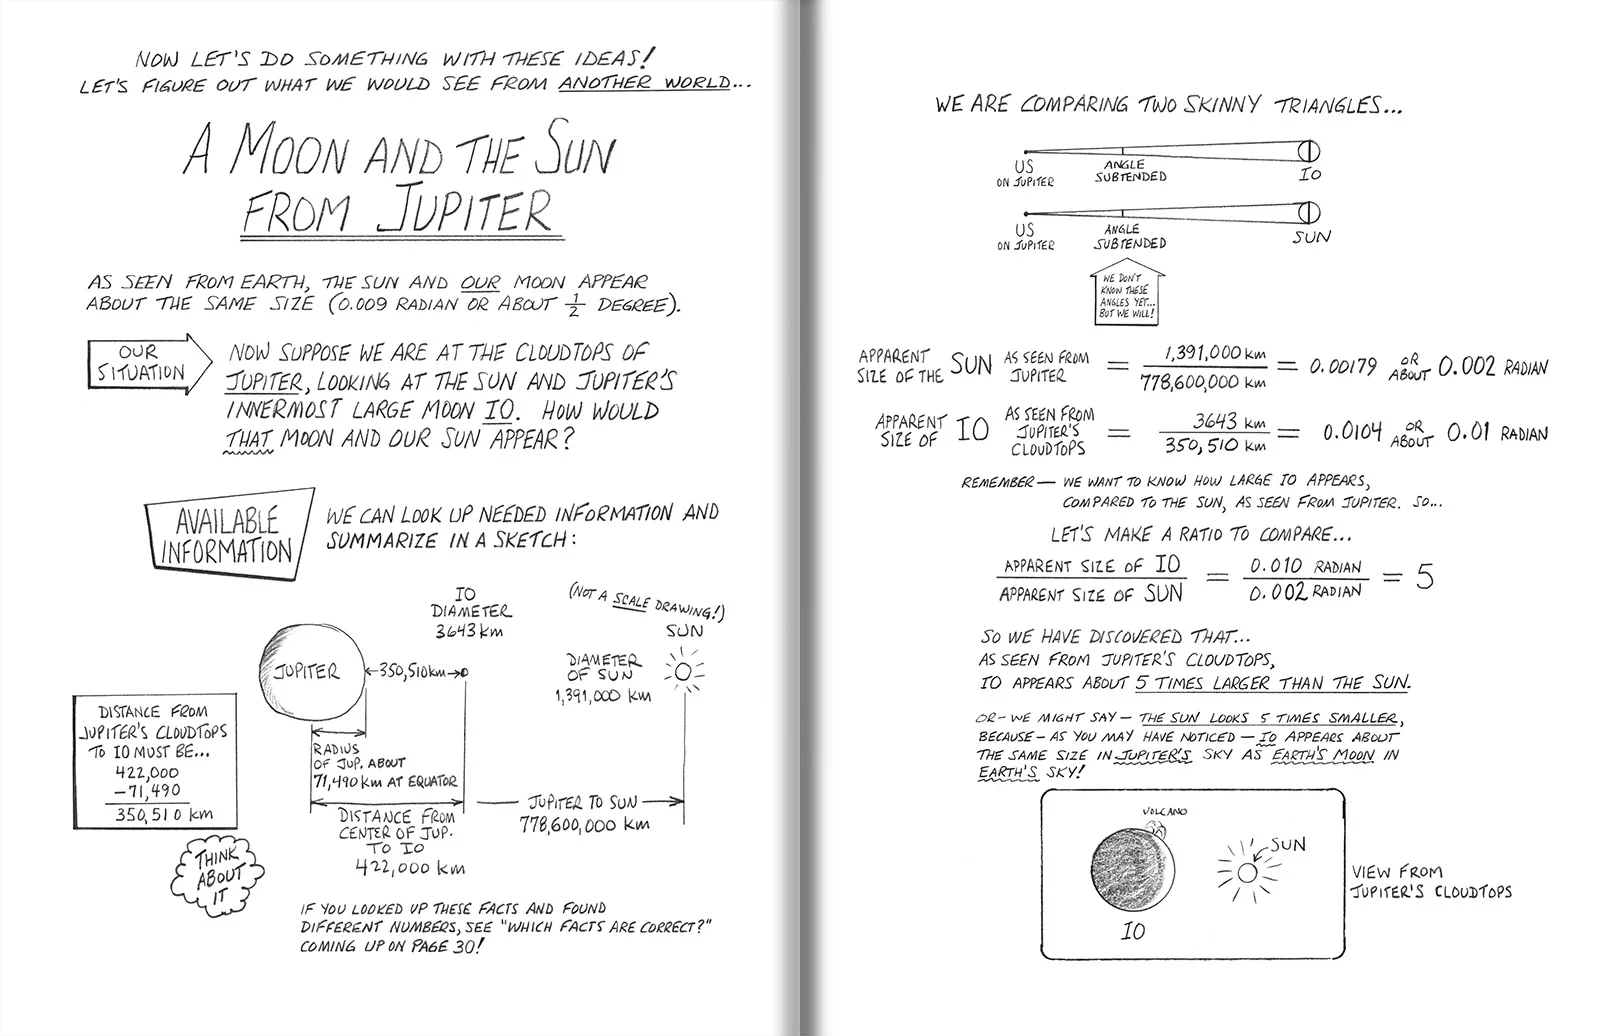 NOW LET'S DO SOMETHING WITH THESE IDEAS!
LET'S FIGURE OUT WHAT WE WOULD SEE FROM ANOTHER WORLD...
A MOON AND THE SUN
FROM JUPITER
AS SEEN FROM EARTH, THE SUN AND OUR MOON APPEAR
ABOUT THE SAME SIZE (0.009 RADIAN OR ABOUT 1/2 DEGREE).
OUR
SITUATION
NOW SUPPOSE WE ARE AT THE CLOUDTOPS OF
JUPITER, LOOKING AT THE SUN AND JUPITER'S
INNERMOST LARGE MOON IO. HOW WOULD
THAT MOON AND OUR SUN APPEAR?
AVAILABLE
INFORMATION
WE CAN LOOK UP NEEDED INFORMATION AND
SUMMARIZE IN A SKETCH:
IO
DIAMETER
3643 km
(NOT A SCALE DRAWING!)
SUN
JUPITER
350,510 km
DIAMETER
OF SUN
1,391,000 km
DISTANCE FROM
JUPITER'S CLOUDTOPS
TO IO MUST BE...
422,000
-71,490
350,510 km
RADIUS
OF JUP. ABOUT
71,490 km AT EQUATOR
DISTANCE FROM
CENTER OF JUP.
TO IO
422,000 km
JUPITER TO SUN
778,600,000 km
THINK
ABOUT
IT
IF YOU LOOKED UP THESE FACTS AND FOUND
DIFFERENT NUMBERS, SEE "WHICH FACTS ARE CORRECT?"
COMING UP ON PAGE 30!
WE ARE COMPARING TWO SKINNY TRIANGLES...
US
ON JUPITER
ANGLE
SUBTENDED
IO
US
ON JUPITER
ANGLE
SUBTENDED
SUN
WE DON'T
KNOW THESE
ANGLES YET...
BUT WE WILL!
APPARENT
SIZE OF THE SUN AS SEEN FROM
JUPITER = 1,391,000 km / 778,600,000 km = 0.00179 OR ABOUT 0.002 RADIAN
APPARENT
SIZE OF IO AS SEEN FROM
JUPITER'S
CLOUDTOPS = 3643 km / 350,510 km = 0.0104 OR ABOUT 0.01 RADIAN
REMEMBER — WE WANT TO KNOW HOW LARGE IO APPEARS,
COMPARED TO THE SUN, AS SEEN FROM JUPITER. SO...
LET'S MAKE A RATIO TO COMPARE...
APPARENT SIZE OF IO / APPARENT SIZE OF SUN = 0.010 RADIAN / 0.002 RADIAN = 5
SO WE HAVE DISCOVERED THAT...
AS SEEN FROM JUPITER'S CLOUDTOPS,
IO APPEARS ABOUT 5 TIMES LARGER THAN THE SUN.
OR - WE MIGHT SAY - THE SUN LOOKS 5 TIMES SMALLER,
BECAUSE - AS YOU MAY HAVE NOTICED - IO APPEARS ABOUT
THE SAME SIZE IN JUPITER'S SKY AS EARTH'S MOON IN
EARTH'S SKY!
VOLCANO
SUN
IO
VIEW FROM
JUPITER'S CLOUDTOPS